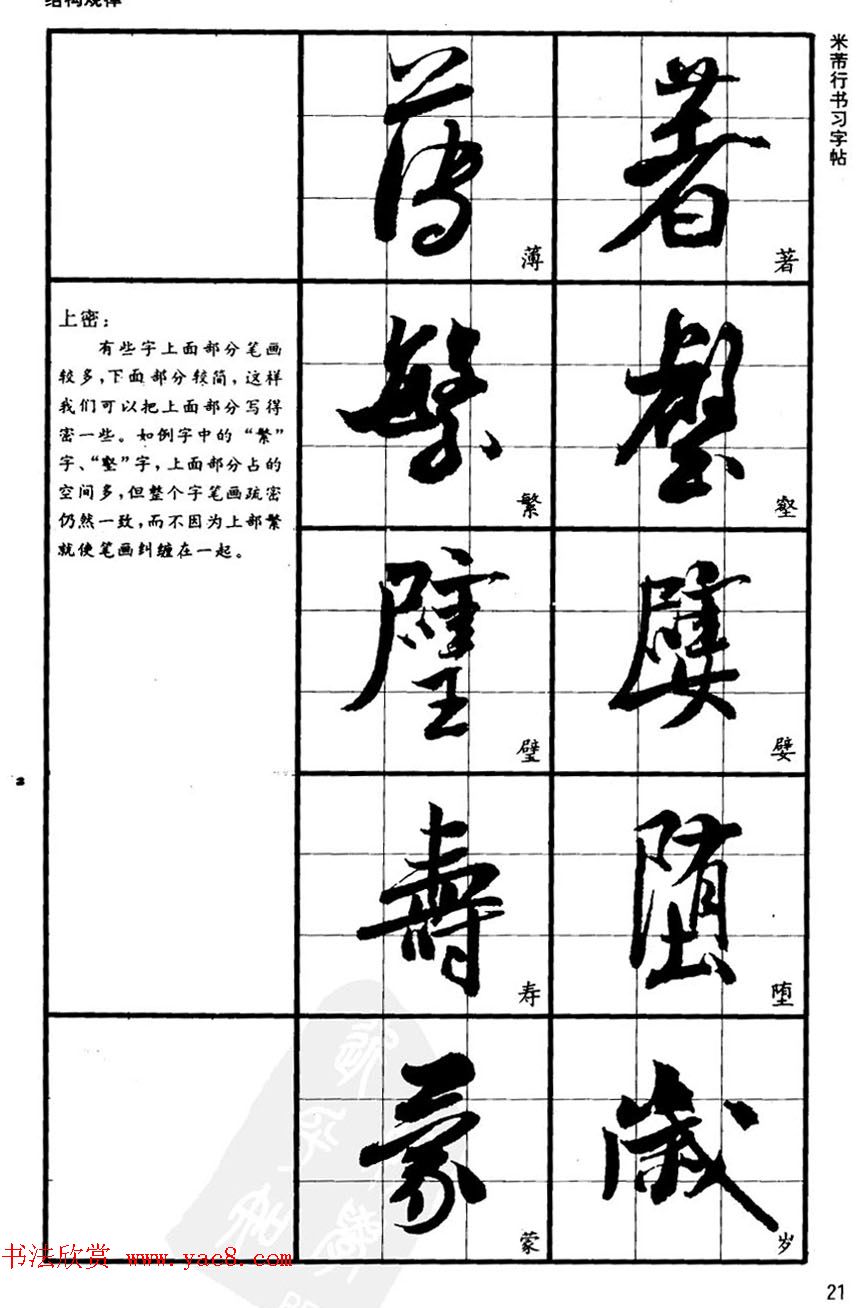 结构规律
米芾行书习字帖
著 著
薄 薄
壑 壑
繁 繁
嬖 嬖
璧 璧
墮 堕
壽 寿
歲 岁
蒙 蒙
上密：
有些字上面部分笔画
较多，下面部分较简，这样
我们可以把上面部分写得
密一些。如例字中的“繁”
字、“壑”字，上面部分占的
空间多，但整个字笔画疏密
仍然一致，而不因为上部繁
就使笔画纠缠在一起。
书法欣赏 www.yac8.com
21